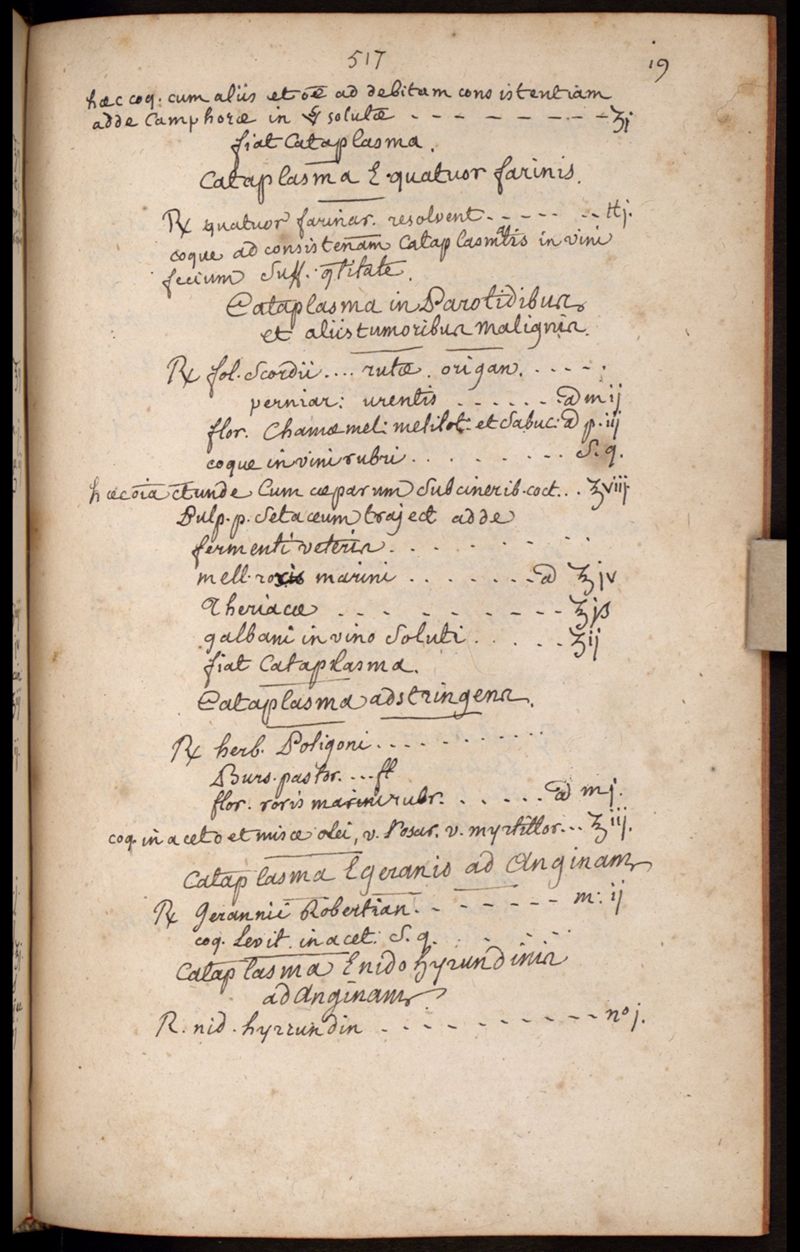 517
19
hæc coq. cum aliis et oē ad debitam consistentiam
adde Camphoræ in solutæ - - - - - - - ʒj
fiat Cataplasma.
Cataplasma E quatuor farinis.
℞ quatuor farinar. resolvent - - - - - - ℔j.
coque ad consistenām Cataplasmtis in vini
fecium Suff. qtitate.
Cataplasma in Parotidibus
et aliis tumoribus malignis.
℞ fol. Scordii .... rutæ . origan. . - - - .
perniar: urentis - - - - - - ā m ij
flor. Chamæmel: melilot: et Sabuc: ā p. iij
coque in vini rubri . . . . . . . . . S. q.
hæc oīa ctunde Cum cæparum Sub cinerib. coct. . . ℥viij.
Pulp. p. Setaceum traject adde
fermenti veteris . . . . . . . . .
mell. roris marini . . . . . . . ā ℥jv
Theriacæ - - - - - - - - - ℥jß
galbani in vino Soluti . . . . . ℥ij
fiat Cataplasma.
Cataplasma adstringens.
℞ herb. Poligoni . . . . . . . . . . .
Burs. pastor. ... ff
flor. roris marini rubr. . . . . . . ā mj.
coq. in aceto et misce olei, v. Rosar. v. myrtillor... ℥iij.
Cataplasma E geranio ad Anginam
℞ Gerannii Robertian. - - - - - - - m: ij
coq. Levit. in acet: S. q. . . . . .
Cataplasma E nido hyrundinis
ad Anginam
R. nid. hyrrundin - - - - - - - - - - nº j.